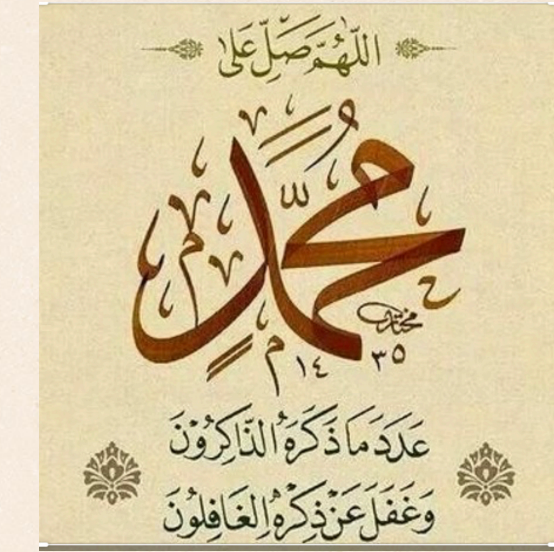 اللّٰهُمَّ صَلِّ عَلٰى
مُحَمَّدٍ
مختار
١٤٣٥
عَدَدَ مَا ذَكَرَهُ الذَّاكِرُوْنَ
وَغَفَلَ عَنْ ذِكْرِهِ الْغَافِلُوْنَ